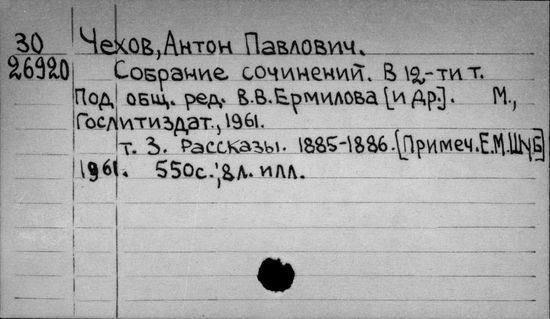 30 Чехов, Антон Павлович.
26920 Собрание сочинений. В 12-ти т.
Под общ. ред. В.В.Ермилова [и др.]. М.,
Гослитиздат., 1961.
т. 3. Рассказы. 1885-1886. [Примеч. Е.М.Шуб]
1961. 550с.; 8л. илл.